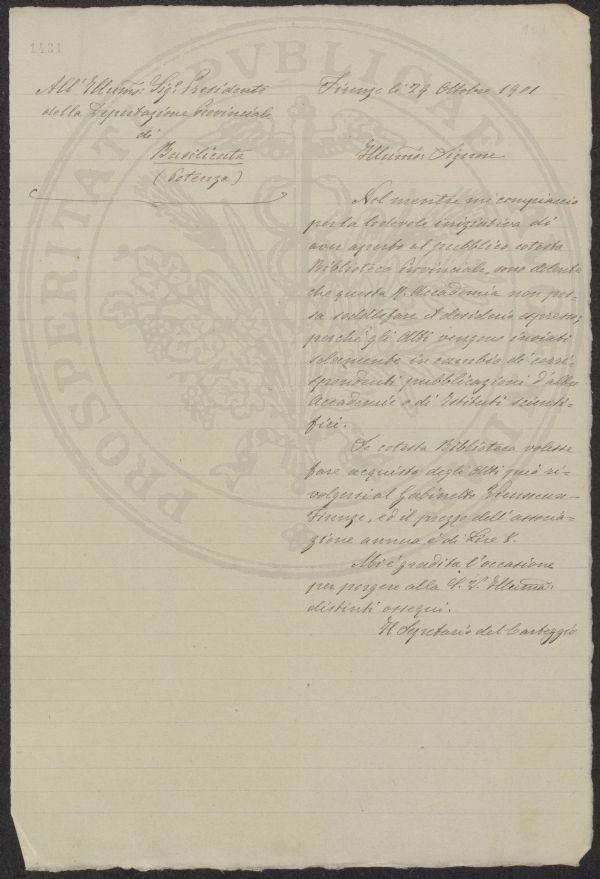 1431
All'Illumo: Sig: Presidente
della Deputazione Provinciale
di
Basilicata
(Potenza)
Firenze li 29 Ottobre 1901
Illumo: Signore
Nel mentre mi compiaccio
per la lodevole iniziativa di
aver aperto al pubblico cotesta
Biblioteca Provinciale, sono dolente
che questa R. Accademia non pos-
sa soddisfare il desiderio espresso;
perchè gli Atti vengono inviati
solamente in cambio di corri-
spondenti pubblicazioni d'altre
Accademie o di Istituti scienti-
fici.
Se cotesta Biblioteca volesse
fare acquisto degli Atti può ri-
volgersi al Gabinetto Vieusseux-
Firenze, ed il prezzo dell'associa-
zione annua è di Lire 8.
Mi è gradita l'occasione
per porgere alla S. V. Illuma:
distinti ossequi.
Il Segretario del Carteggio
PROSPERITATI PVBLICAE